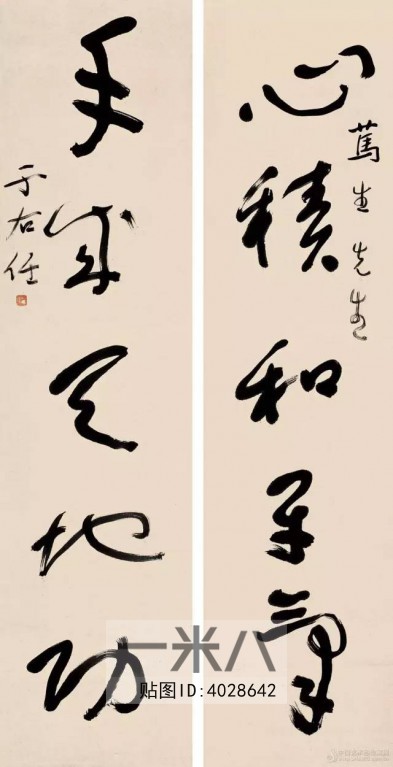 心積和平氣
篤生先生
手成天地功
于右任
一米八
贴图ID:4028642